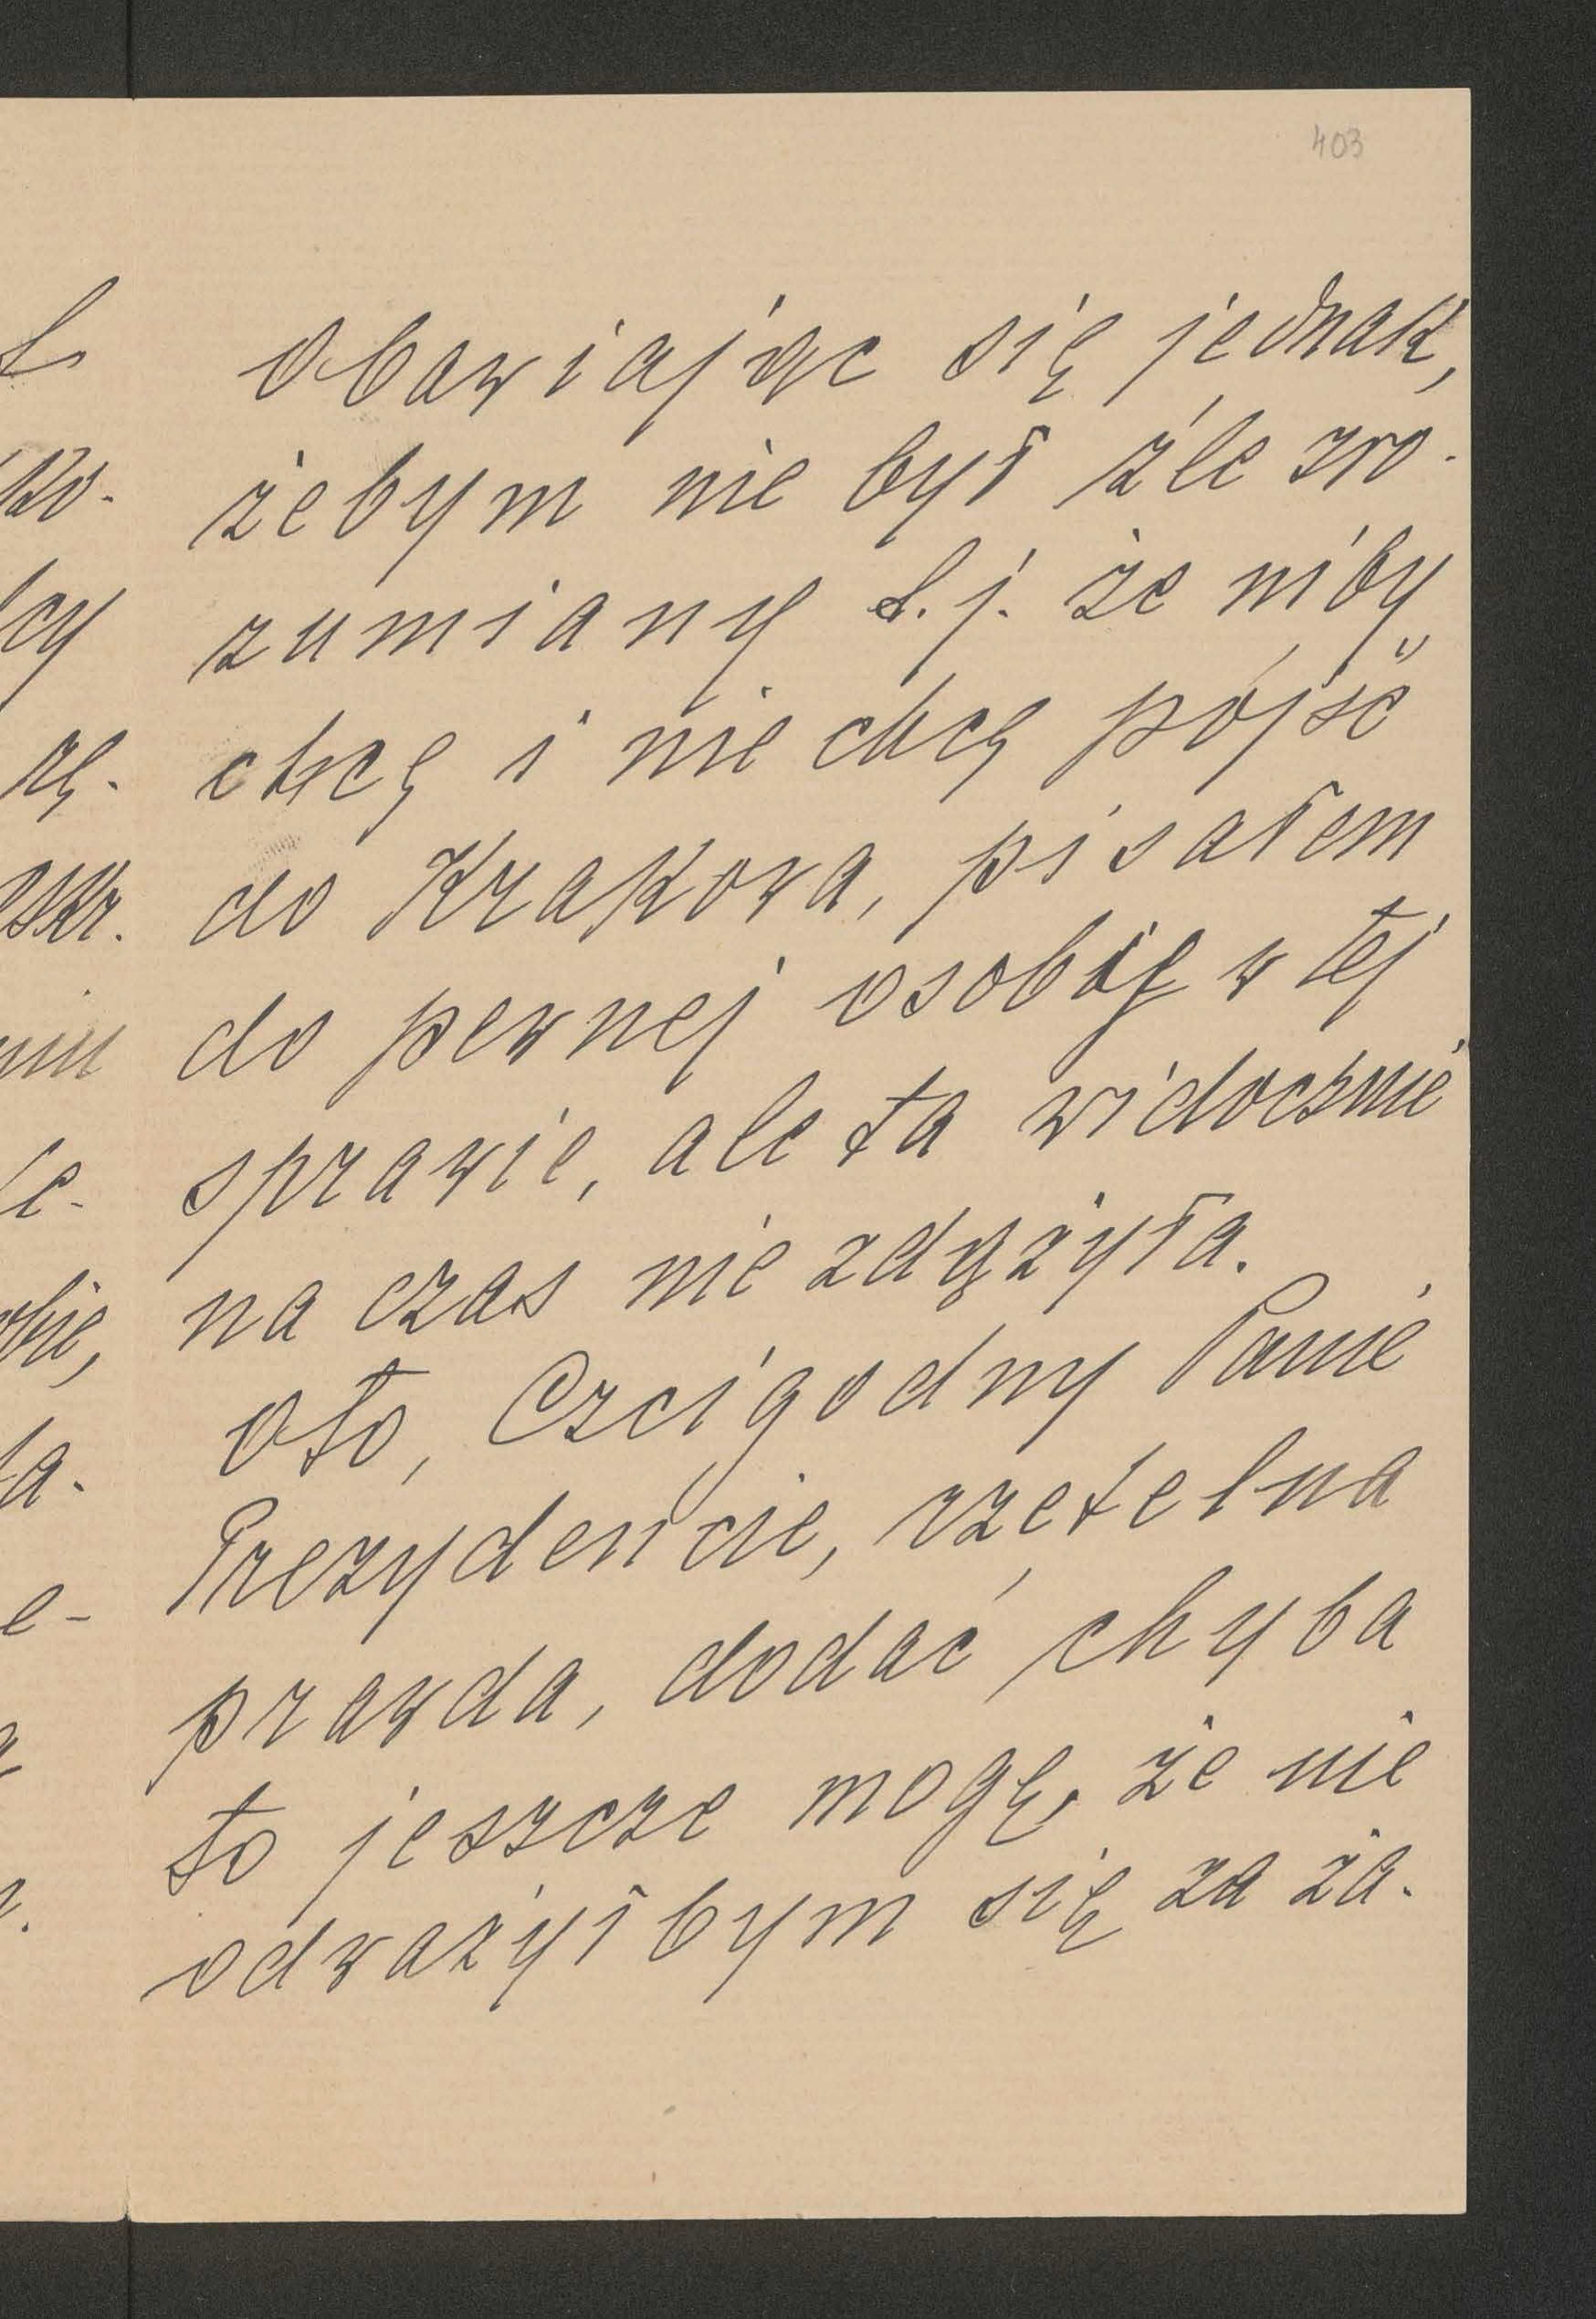 403
Obawiając się jednak,
żebym nie był źle zro-
zumiany t.j. że niby
chcę i nie chcę pójść
do Krakowa, pisałem
do pewnej osoby w tej
sprawie, ale ta widocznie
na czas nie zdążyła.
Oto, Czcigodny Panie
Prezydencie, rzetelna
prawda, dodać chyba
to jeszcze mogę, że nie
odważyłbym się za żą-